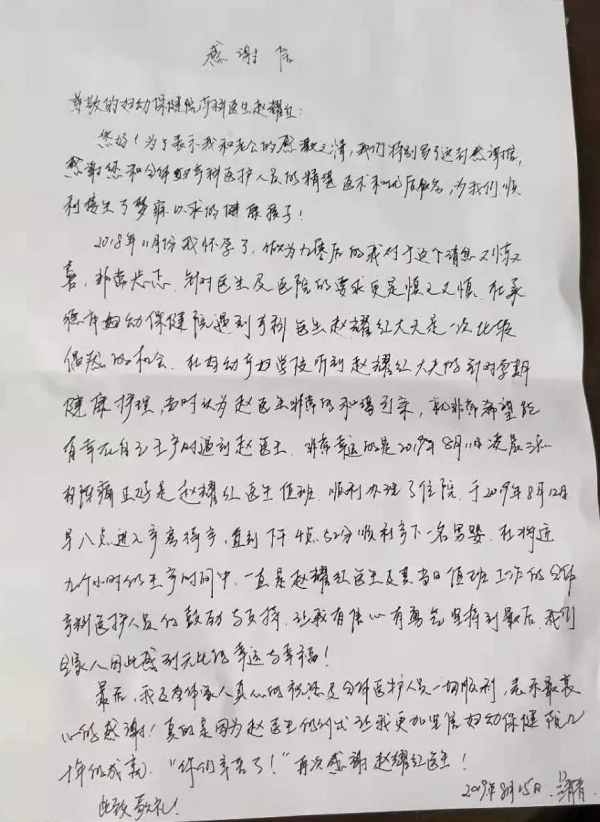 感谢信
尊敬的妇幼保健院产科医生赵耀红:
您好!为了表示我和老公的感激之情,我们特别写了这封感谢信,
感谢您和全体妇产科医护人员的精湛医术和优质服务,为我们顺
利接生了梦寐以求的健康孩子!
2018年11月份我怀孕了,做为九零后的我对于这个消息又惊又
喜,非常忐忑,针对医生及医院的要求更是慎之又慎,在承
德市妇幼保健院遇到产科医生赵耀红大夫是一次比较
偶然的机会,在妇幼孕妇学校听到赵耀红大夫的针对孕期
健康护理,当时认为赵医生非常的和蔼可亲,就非常希望能
有幸在自己生产时遇到赵医生,非常幸运的是2019年8月11日凌晨三点
有阵痛正好是赵耀红医生值班,顺利办理了住院,于2019年8月12日
早八点进入产房待产,直到下午4点52分顺利产下一名男婴,在将近
九个小时的生产时间中,一直是赵耀红医生及其当日值班工作的全部
产科医护人员的鼓励与支持,让我有信心有勇气坚持到最后,我们
全家人因此感到无比的幸运与幸福!
最后,我及全体家人真心的祝愿全体医护人员一切顺利,表示最衷
心的感谢!真的是因为赵医生的付出让我更加坚信妇幼保健院几
十年的成就,“你们辛苦了!”再次感谢赵耀红医生!
此致敬礼!
2019年8月15日